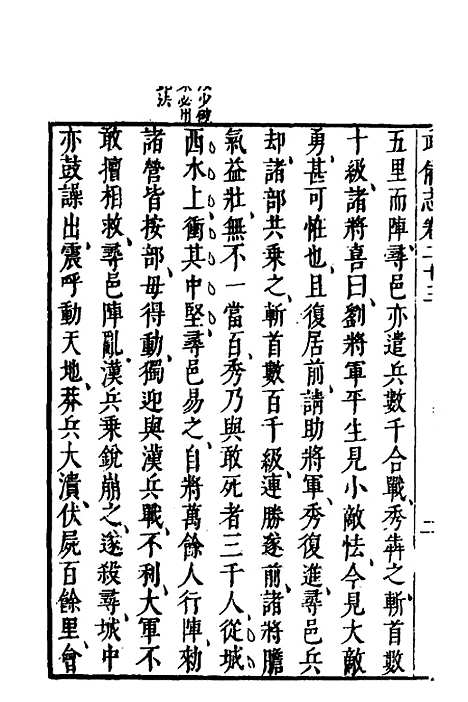 武備志卷二十三
二
五里而陣尋邑亦遣兵數千合戰秀犇之斬首數
十級諸將喜曰劉將軍平生見小敵怯今見大敵
勇甚可怪也且復居前請助將軍秀復進尋邑兵
却諸部共乘之斬首數百千級連勝遂前諸將膽
氣益壯無不一當百秀乃與敢死者三千人從城
西水上衝其中堅尋邑易之自將萬餘人行陣勅
諸營皆按部毋得動獨迎與漢兵戰不利大軍不
敢擅相救尋邑陣亂漢兵乘銳崩之遂殺尋城中
亦鼓譟出震呼動天地莽兵大潰伏屍百餘里會